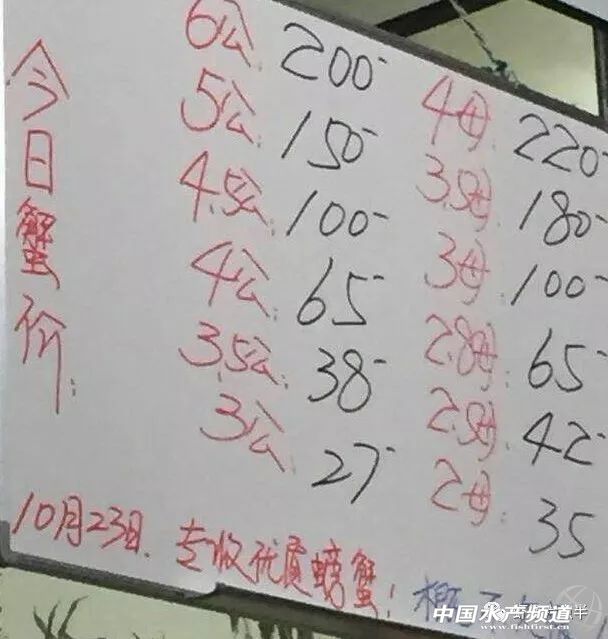 今日蟹价:
6公: 200-
5公: 150-
4.5公: 100-
4公: 65-
3.5公: 38-
3公: 27-
4母: 220-
3.5母: 180-
3母: 100-
2.8母: 65-
2.5母: 42-
2母: 35
10月23日. 专收优质螃蟹!
中国水产频道
www.fishfirst.cn